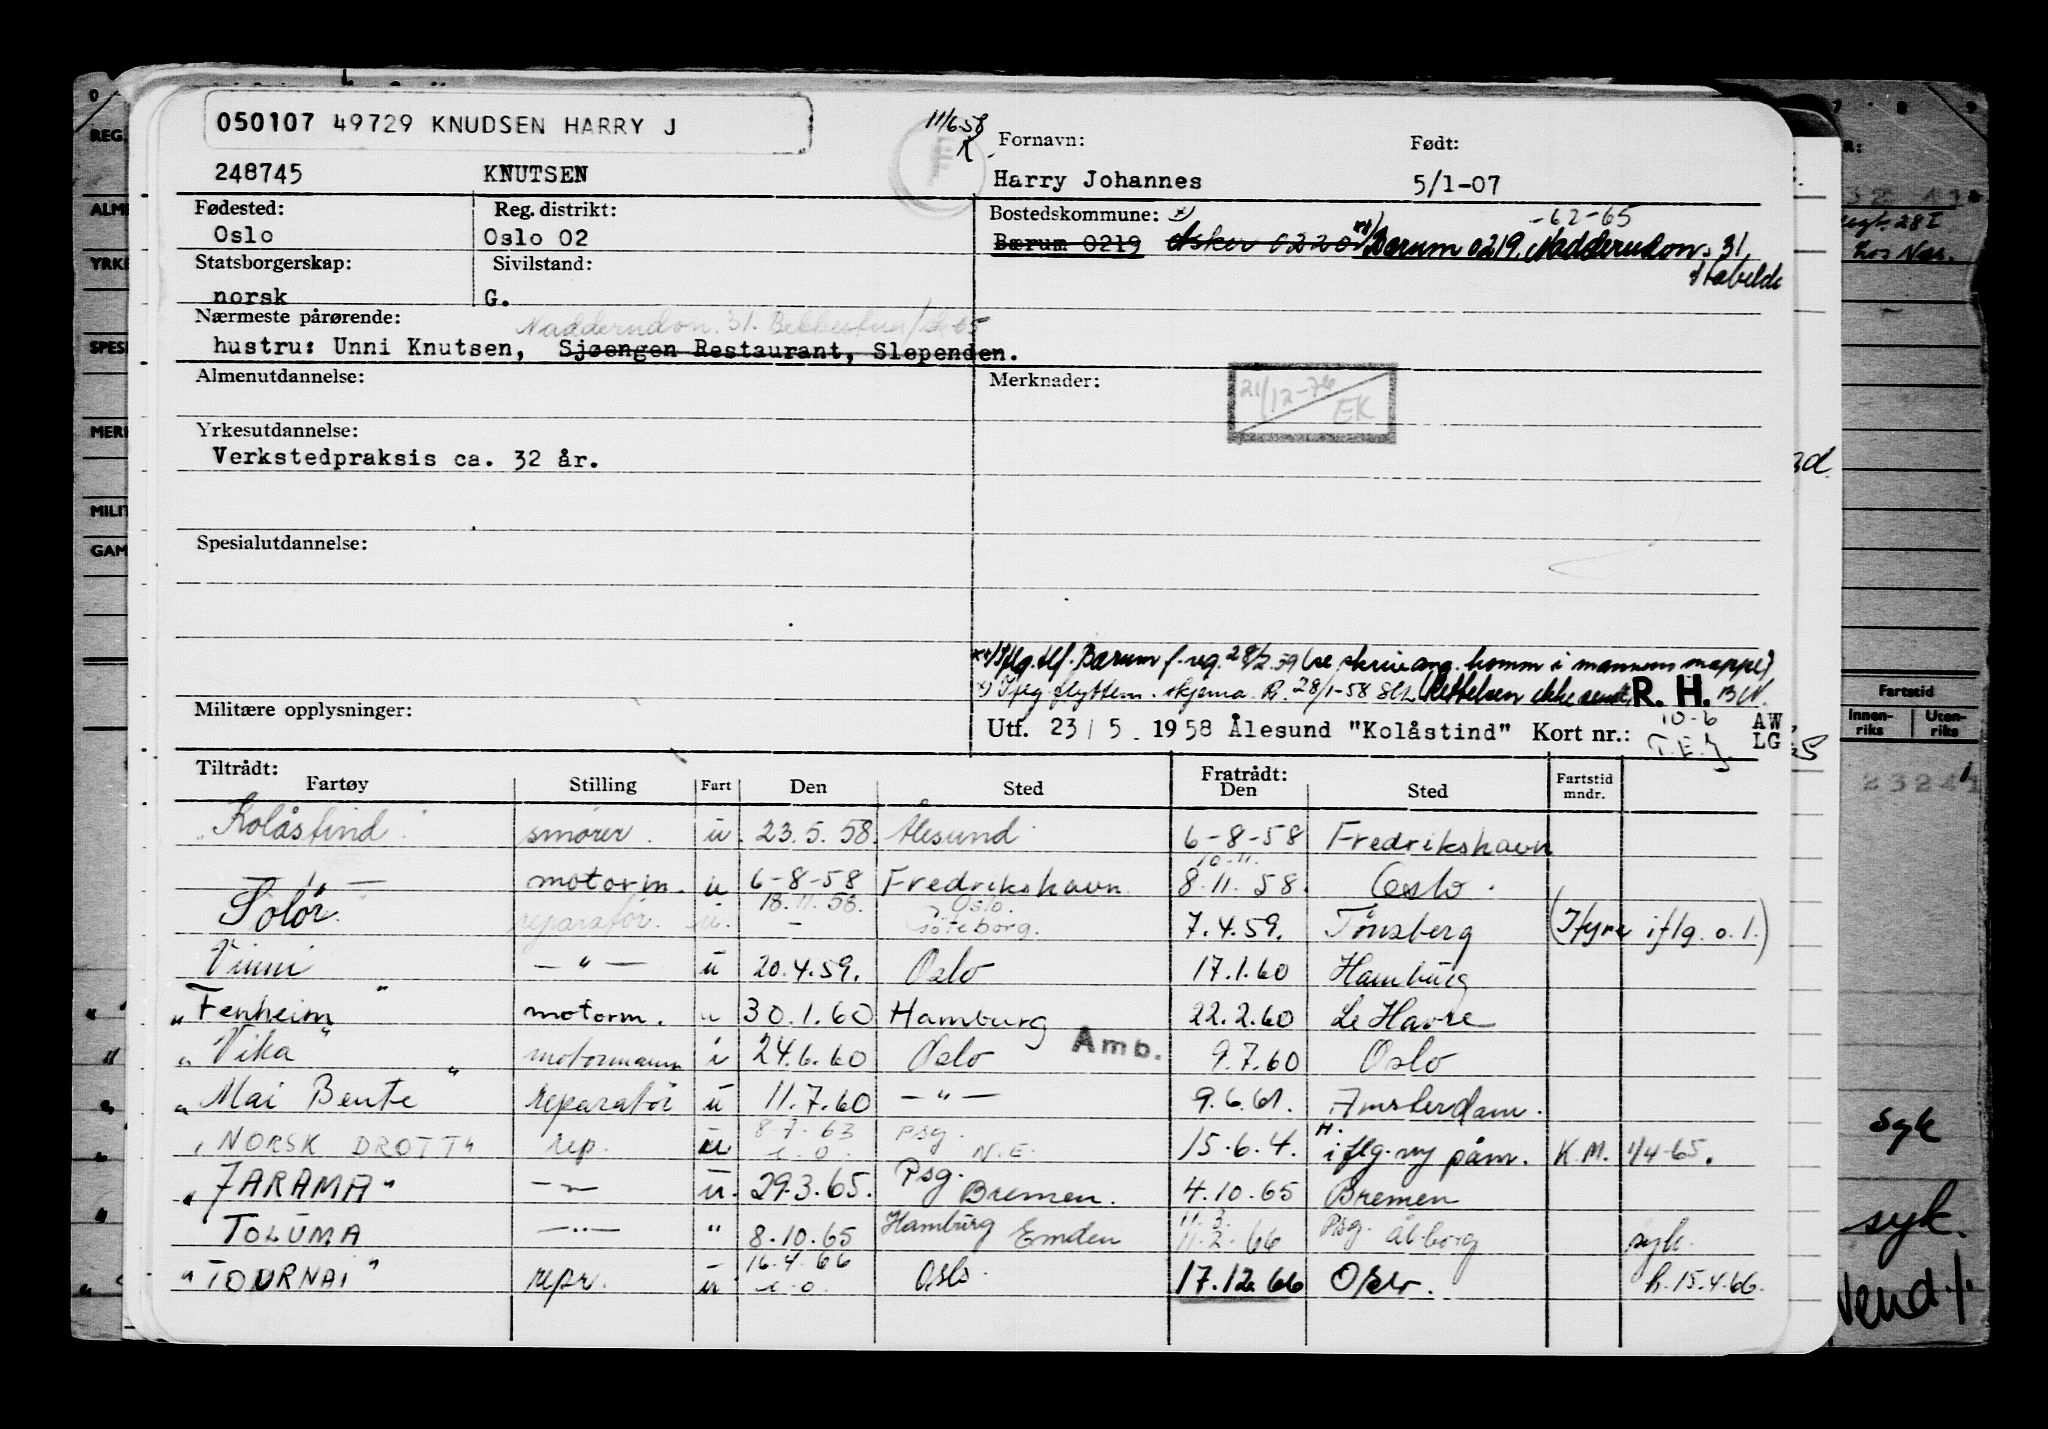 050107 49729 KNUDSEN HARRY J
11/6-58
R
248745 KNUTSEN
Fornavn: Født:
Harry Johannes 5/1-07
Fødested: Reg. distrikt: Bostedskommune: x)
Oslo Oslo 02
-62-65
Bærum 0219 Asker 0220 xx) Bærum 0219.
31,
Statsborgerskap: Sivilstand:
norsk G.
Nærmeste pårørende:
hustru: Unni Knutsen, Sjøengen Restaurant, Slependen.
Almenutdannelse: Merknader:
21/12-76
EK
Yrkesutdannelse:
Verkstedpraksis ca. 32 år.
Spesialutdannelse:
xx) Iflg. tlf. Bærum f. reg. 28/2.59 (se skriv ang. komm i mannens mappe)
x) Iflg flyttem. skjema R. 28/1-58 (Rettelsen ikke sendt) R. H.
Militære opplysninger:
Utf. 23/5 1958 Ålesund "Kolåstind" Kort nr.: 10-6 AW
LG
Tiltrådt: Fratrådt:
Fartøy Stilling Fart Den Sted Den Sted Fartstid mndr.
"Kolåstind" smører u. 23.5.58. Ålesund 6-8-58 Fredrikshavn
10.11.
— " — motorm. u 6-8-58 Fredrikshavn 8.11.58. Oslo.
18.11.58. Oslo.
Solør reparatør. u. - Göteborg. 7.4.59. Tönsberg (Hyre iflg. o. l.)
Vinni — " — u 20.4.59. Oslo 17.1.60 Hamburg
"Fenheim" motorm. u 30.1.60 Hamburg 22.2.60 Le Havre
"Vika" motormann i 24.6.60 Oslo Amb. 9.7.60 Oslo
"Mai Bente" reparatör u 11.7.60 — " — 9.6.61. Amsterdam.
8-7-63 psg.
"NORSK DROTT" rep. u N.E. 15.6.4. iflg. ny påm. K.M. 1/4-65.
"JARAMA" — " — u. 29.3.65. Psg. Bremen. 4.10.65 Bremen
11.3.
TOLUMA — " — " 8.10.65 Hamburg Emden 11.2.66 Psg. Ålborg syk.
16.4.66
"TOURNAI" repr. u Oslo. 17.12.66 Oslo. h. 15.4.66.
REG.
YRKE
SPES
Fartstid
Innen-
riks
Uten-
riks
syk
syk.
Vend./.